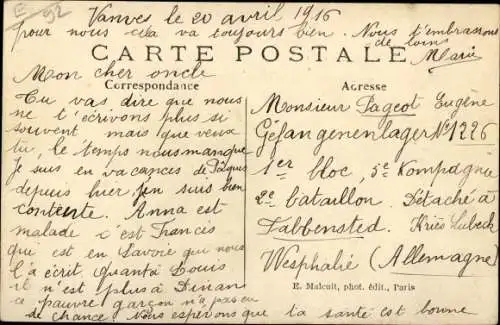 E 92
Vanves le 20 avril 1916
pour nous cela va toujours bien. Nous t'embrassons
de loin
Marie
CARTE POSTALE
Correspondance
Adresse
Mon cher oncle
Tu vas dire que nous
ne t'écrivons plus si
souvent mais que veux
tu, le temps nous manque
Je suis en vacances de Pâques
depuis hier, j'en suis bien
contente. Anna est
malade c'est Francis
qui est en Savoie qui nous
l'a écrit Quant à Louis
il n'est plus à Dinan
ce pauvre garçon n'a pas eu
de chance. Nous espérons que ta santé est bonne
Monsieur Pageot Eugène
Géfangenenlager No 1226
1er bloc, 5e Kompagnie
2e bataillon. Détaché à
Tabbensted. Kriés Lubeck
Wesphalie (Allemagne)
E. Malcuit, phot. édit., Paris